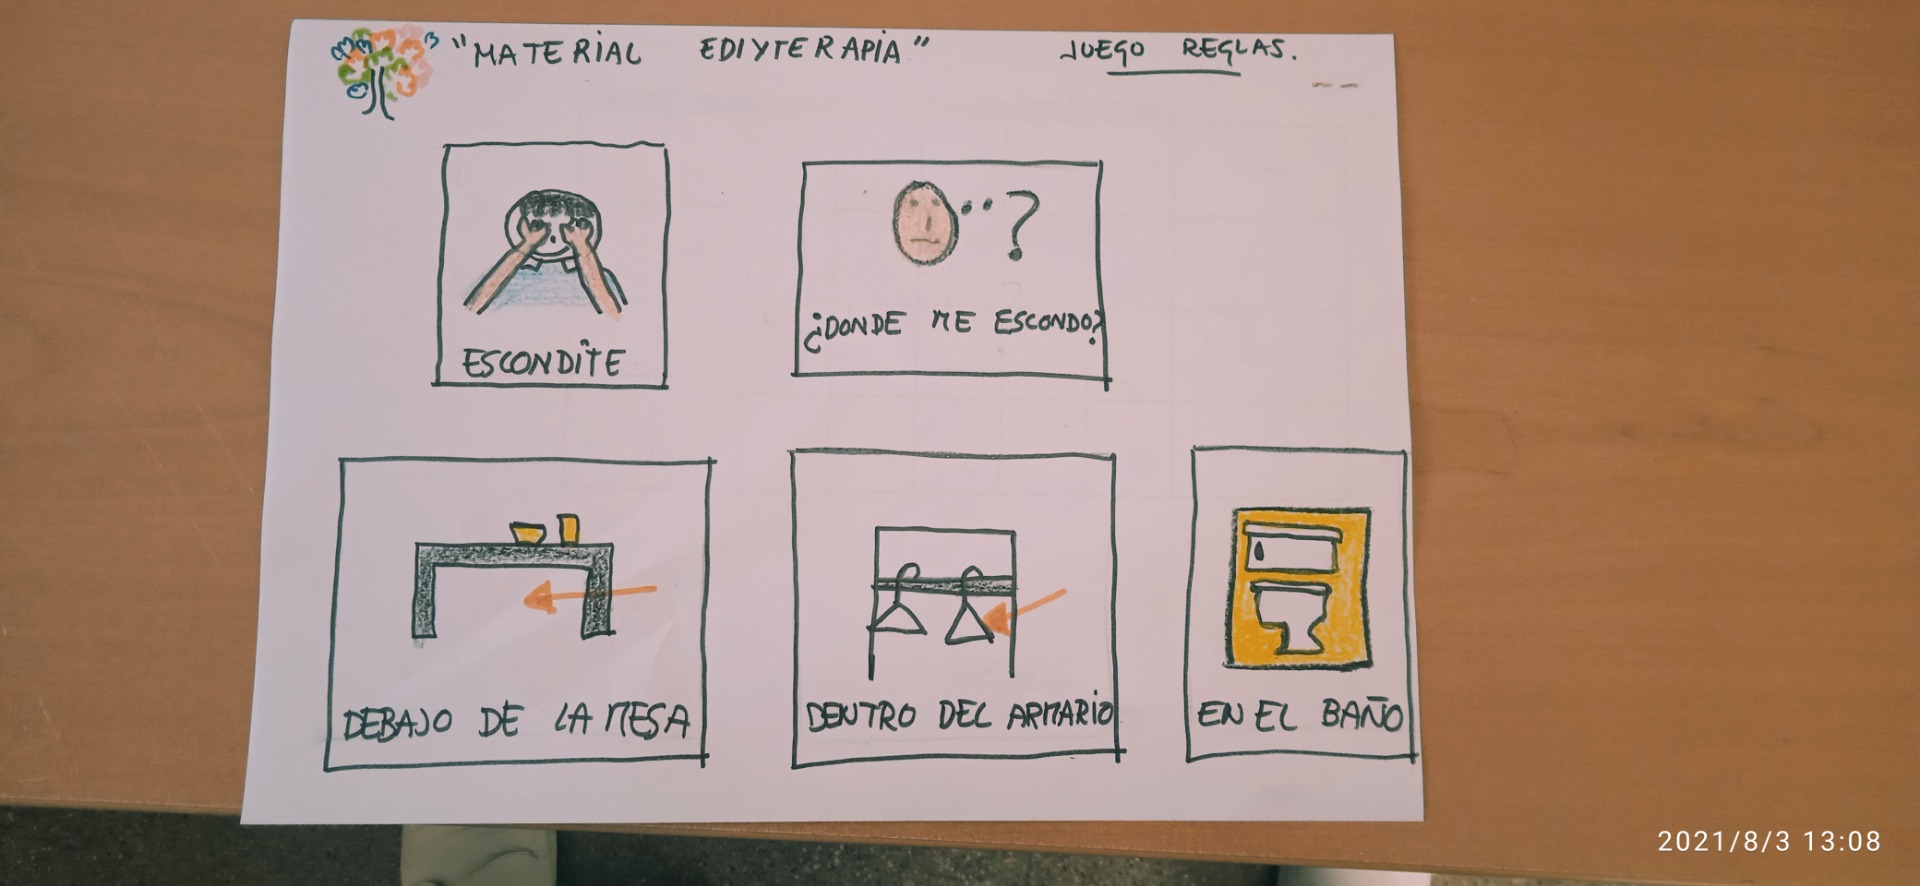 "MATERIAL EDIYTERAPIA" JUEGO REGLAS.
ESCONDITE
?
¿DONDE ME ESCONDO?
DEBAJO DE LA MESA
DENTRO DEL ARMARIO
EN EL BAÑO
2021/8/3 13:08